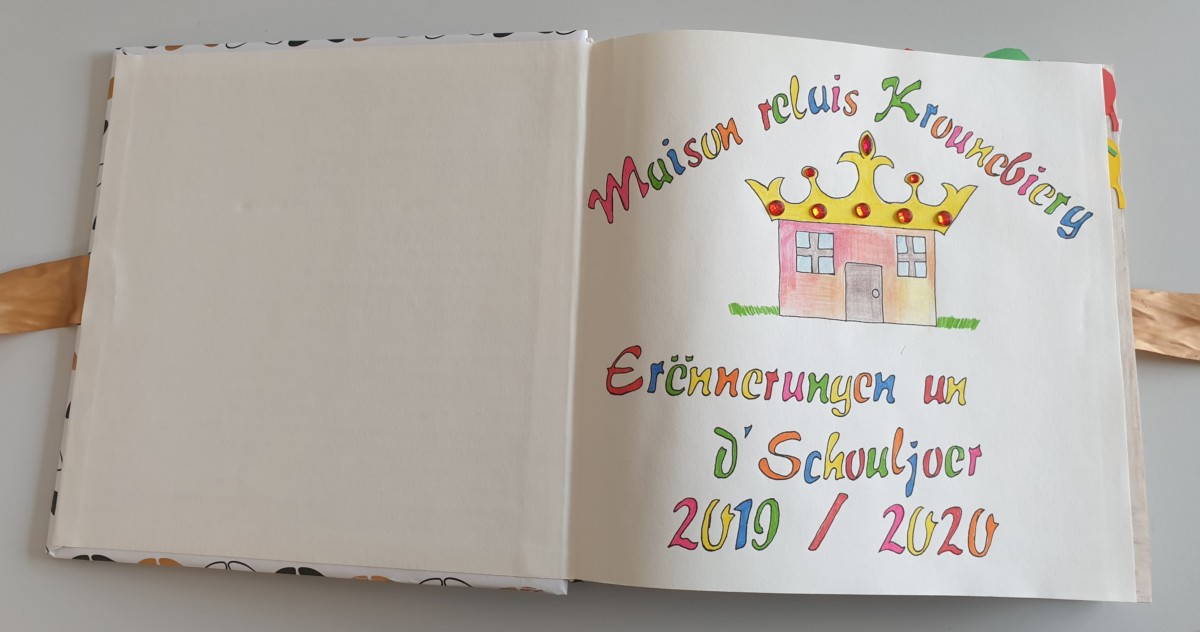 Maison relais Krounebierg
Erënnerungen un
d'Schouljoer
2019 / 2020